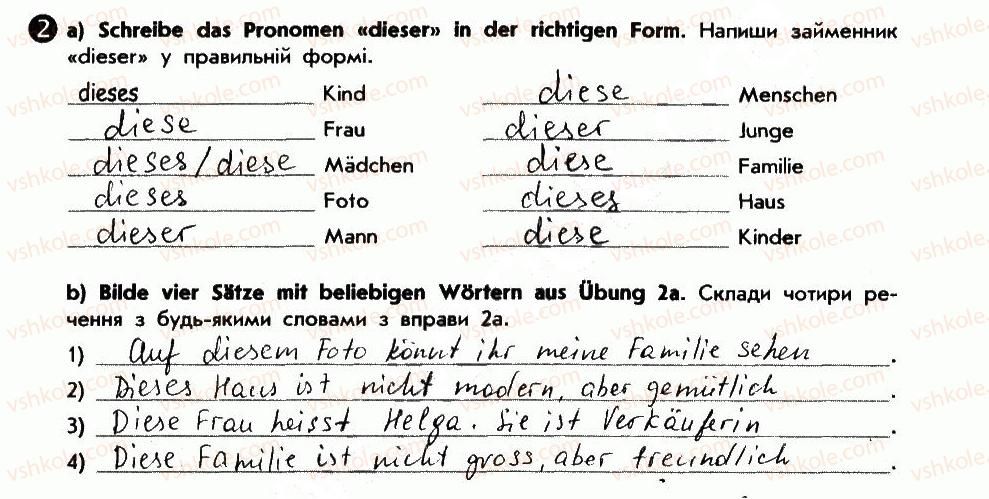 2 a) Schreibe das Pronomen «dieser» in der richtigen Form. Напиши займенник
«dieser» у правильній формі.
dieses Kind diese Menschen
diese Frau dieser Junge
dieses/diese Mädchen diese Familie
dieses Foto dieses Haus
dieser Mann diese Kinder
b) Bilde vier Sätze mit beliebigen Wörtern aus Übung 2a. Склади чотири ре-
чення з будь-якими словами з вправи 2a.
1) Auf diesem Foto könnt ihr meine Familie sehen.
2) Dieses Haus ist nicht modern, aber gemütlich.
3) Diese Frau heisst Helga. Sie ist Verkäuferin.
4) Diese Familie ist nicht gross, aber freundlich.
vshkole.com